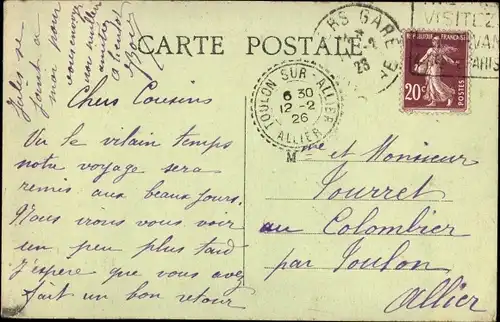 CARTE POSTALE
RS GARE
26
VISITEZ
PARIS
REPUBLIQUE FRANÇAISE
POSTES
20c
TOULON SUR ALLIER
6 30
12-2
26
ALLIER
Jules se
joint à
moi pour
vous envoyer
nos meilleures
amitiés
à bientôt
Chers Cousins
Vu le vilain temps
notre voyage sera
remis aux beaux jours.
Nous irons vous voir
un peu plus tard
J'espère que vous avez
fait un bon retour
Mme et Monsieur
Tourret
au Colombier
par Toulon
Allier